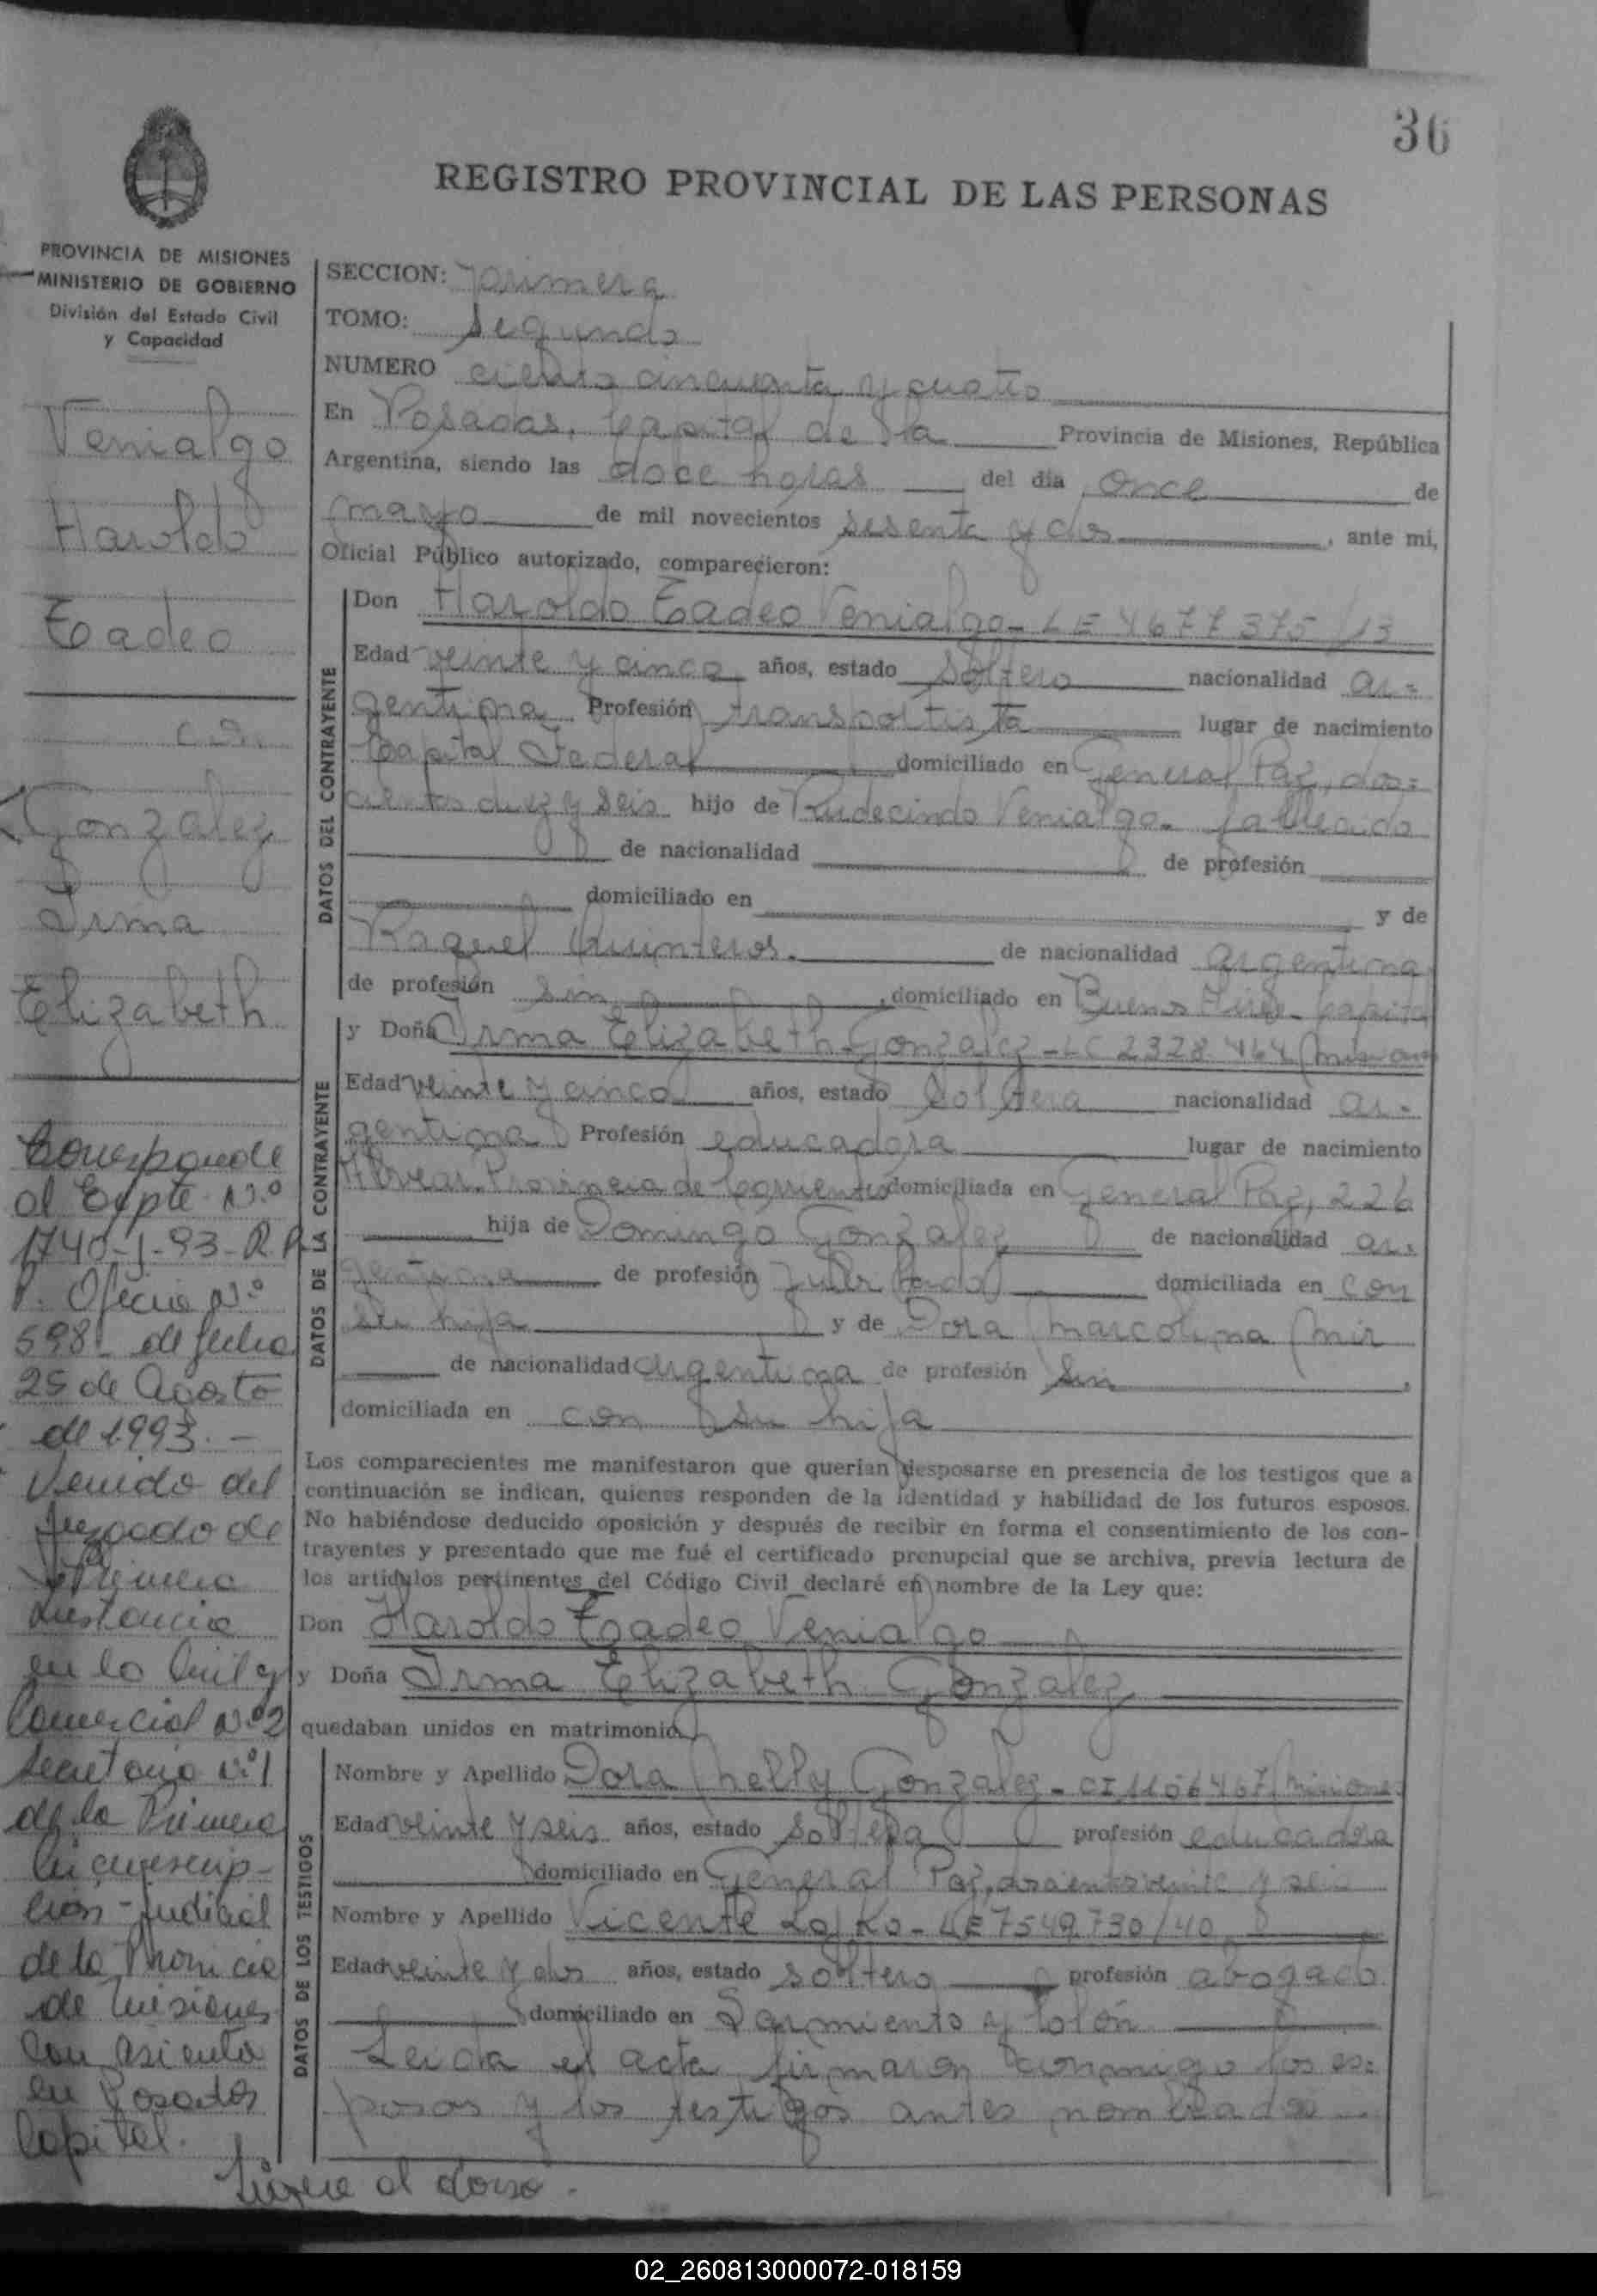 36
REGISTRO PROVINCIAL DE LAS PERSONAS
PROVINCIA DE MISIONES
MINISTERIO DE GOBIERNO
División del Estado Civil
y Capacidad
Venialgo
Haroldo
Tadeo
con
Gonzalez
Irma
Elizabeth
Corresponde
al Expte Nº
1740-J-93-R.P.
P. Oficio Nº
598 de fecha
25 de Agosto
de 1993.-
Venido del
Juzgado de
Primera
Instancia
en lo Civil y
Comercial Nº2
Secretaria Nº1
de la Primera
Circunscrip-
ción Judicial
de la Provincia
de Misiones
con asiento
en Posadas
Capital.
Sigue al dorso.
SECCION: primera
TOMO: segundo
NUMERO ciento cincuenta y cuatro
En Posadas, Capital de la Provincia de Misiones, República
Argentina, siendo las doce horas del día once de
mayo de mil novecientos sesenta y dos, ante mi,
Oficial Público autorizado, comparecieron:
DATOS DEL CONTRAYENTE
Don Haroldo Tadeo Venialgo - LE 4677375/13
Edad veinte y cinco años, estado soltero nacionalidad ar=
gentina Profesión transportista lugar de nacimiento
Capital Federal domiciliado en General Paz, dos=
cientos diez y seis hijo de Rudecindo Venialgo - fallecido
de nacionalidad de profesión
domiciliado en y de
Raquel Quinteros. de nacionalidad argentina
de profesión sin, domiciliado en Buenos Aires - Capital
DATOS DE LA CONTRAYENTE
y Doña Irma Elizabeth Gonzalez - LC 2328464/Misiones
Edad veinte y cinco años, estado soltera nacionalidad ar-
gentina Profesión educadora lugar de nacimiento
Alvear Provincia de Corrientes domiciliada en General Paz, 226
hija de Domingo Gonzalez de nacionalidad ar-
gentina de profesión jubilado domiciliada en con
su hija y de Dora Marcolina Mir
de nacionalidad argentina de profesión sin,
domiciliada en con su hija
Los comparecientes me manifestaron que querían desposarse en presencia de los testigos que a
continuación se indican, quienes responden de la identidad y habilidad de los futuros esposos.
No habiéndose deducido oposición y después de recibir en forma el consentimiento de los con-
trayentes y presentado que me fué el certificado prenupcial que se archiva, previa lectura de
los artículos pertinentes del Código Civil declaré en nombre de la Ley que:
Don Haroldo Tadeo Venialgo
y Doña Irma Elizabeth Gonzalez
quedaban unidos en matrimonio
DATOS DE LOS TESTIGOS
Nombre y Apellido Dora Nelly Gonzalez - CI 1106467/Misiones
Edad veinte y seis años, estado soltera profesión educadora
domiciliado en General Paz, doscientos veinte y seis
Nombre y Apellido Vicente Lojko - LE 7549730/40
Edad veinte y dos años, estado soltero profesión abogado
domiciliado en Sarmiento y Colón
Leida el acta firmaron conmigo los es=
posos y los testigos antes nombrados
02_260813000072-018159